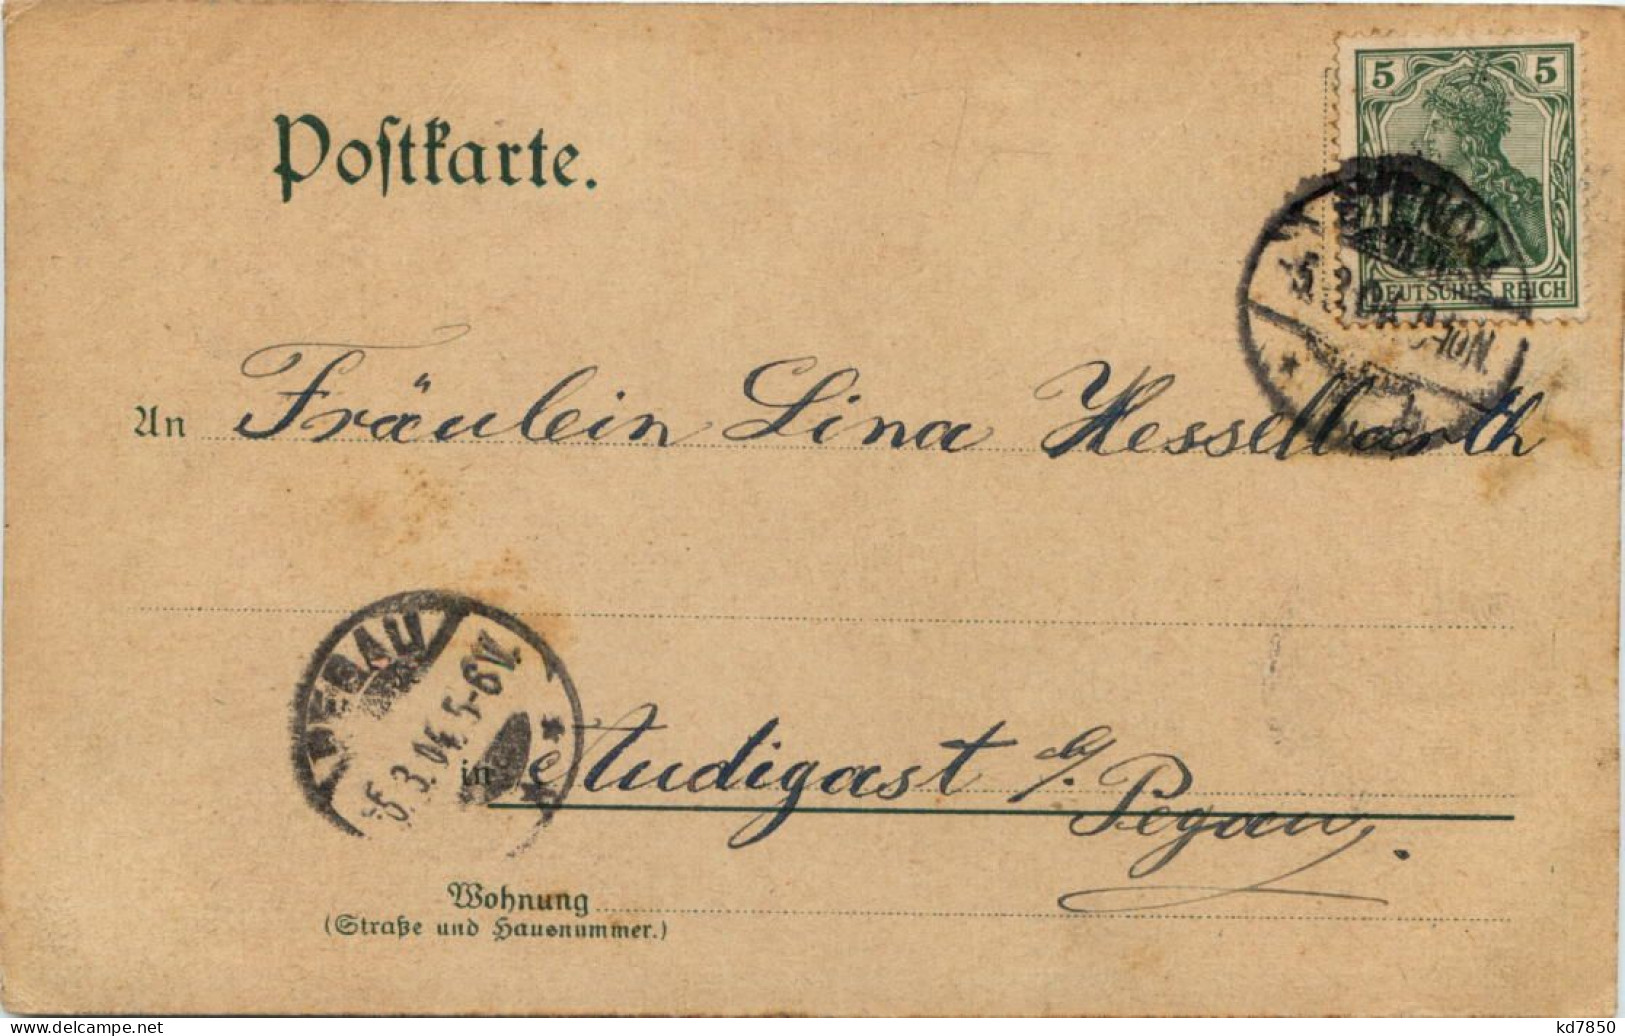 Postkarte.
5 5
DEUTSCHES REICH
STENDAL
5.3.04
10-11 N.
An Fräulein Lina Hesselbarth
PEGAU
5.3.04. 5-6V.
in Audigast b/. Pegau.
Wohnung
(Straße und Hausnummer.)
kd7850